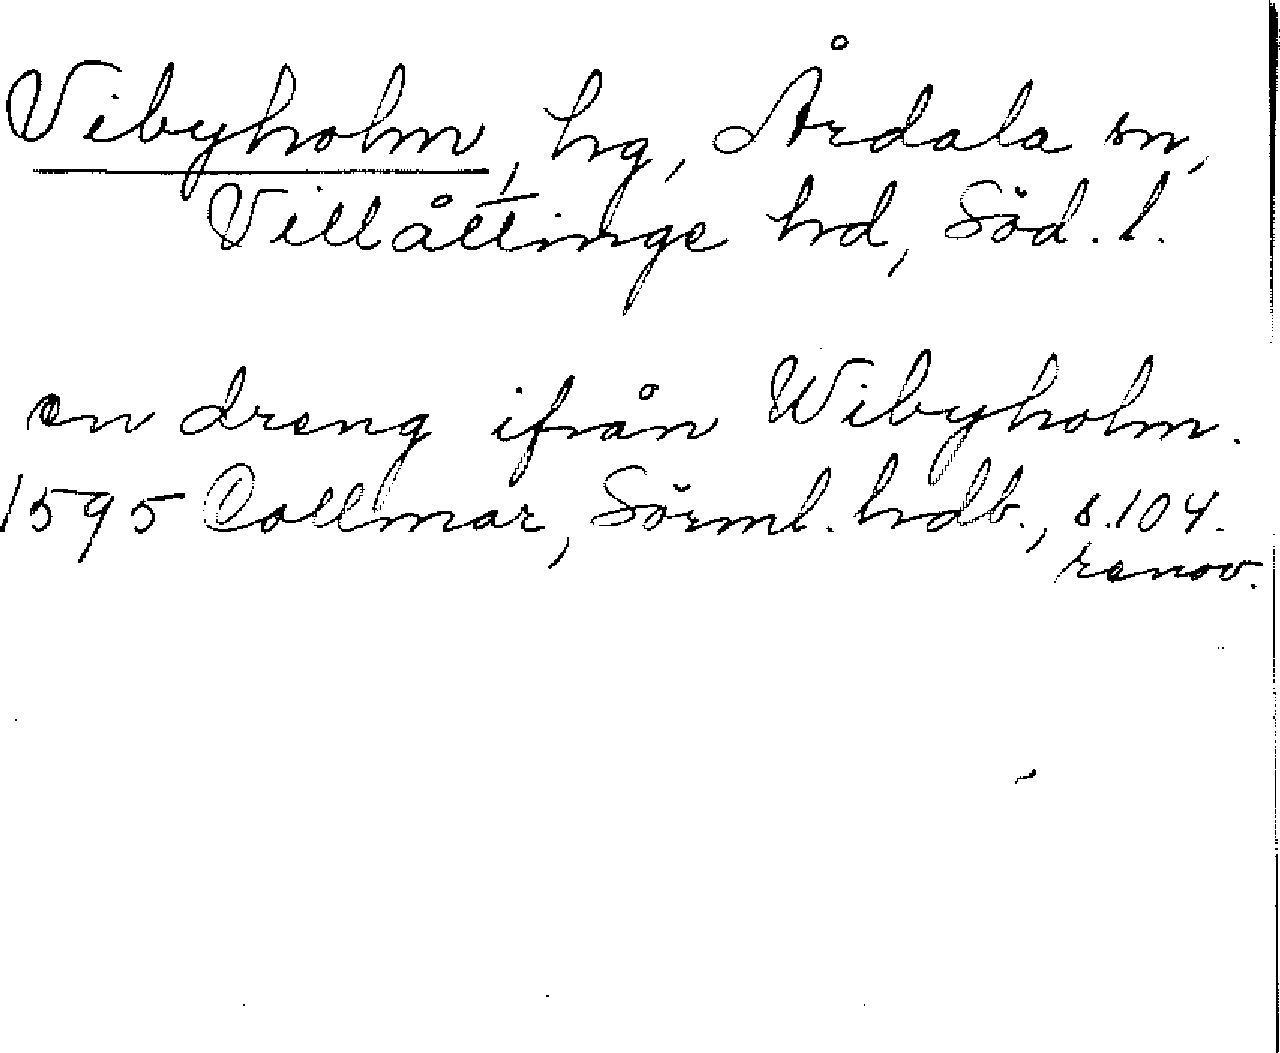 Vibyholm, hg, Årdala sn,
Villåttinge hd, Söd. l.
en dreng ifrån Wibyholm.
1595 Collmar, Sörml. hdb., s. 104.
renov.